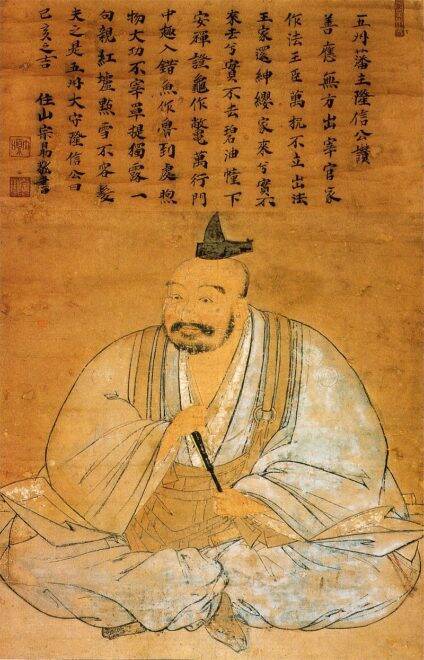 五州藩主隆信公讃
善應無方出宰官家
作法王臣萬机不立出法
王家還紳纓家来兮實不
来去兮實不去碧油幢下
安禅證龜作鼈萬行門
中趣入錯魚作魯到處煦
物大功不宰單提獨露一
句親紅爐點雪不容髪
夫之是五州大守隆信公曰
己亥之吉 住山宗易書